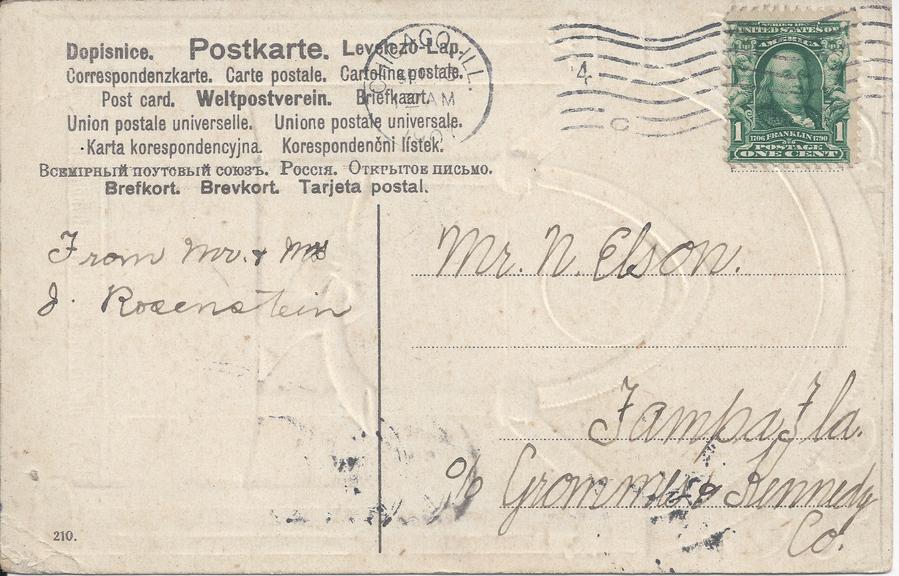 Dopisnice. Postkarte. Levelezö-Lap.
Correspondenzkarte. Carte postale. Cartolina postale.
Post card. Weltpostverein. Briefkaart.
Union postale universelle. Unione postale universale.
Karta korespondencyjna. Korespondenční lístek.
Всемірный поутовый союзъ. Россія. Открытое письмо.
Brefkort. Brevkort. Tarjeta postal.
CHICAGO, ILL.
AM
4
C
SERIES 1902
UNITED STATES OF
AMERICA
1 1706 FRANKLIN 1790 1
POSTAGE
ONE CENT
From Mr. & Mrs
J. Rosenstein
Mr. N. Elson.
Tampa, Fla.
c/o Grommes & Kennedy
Co.
210.